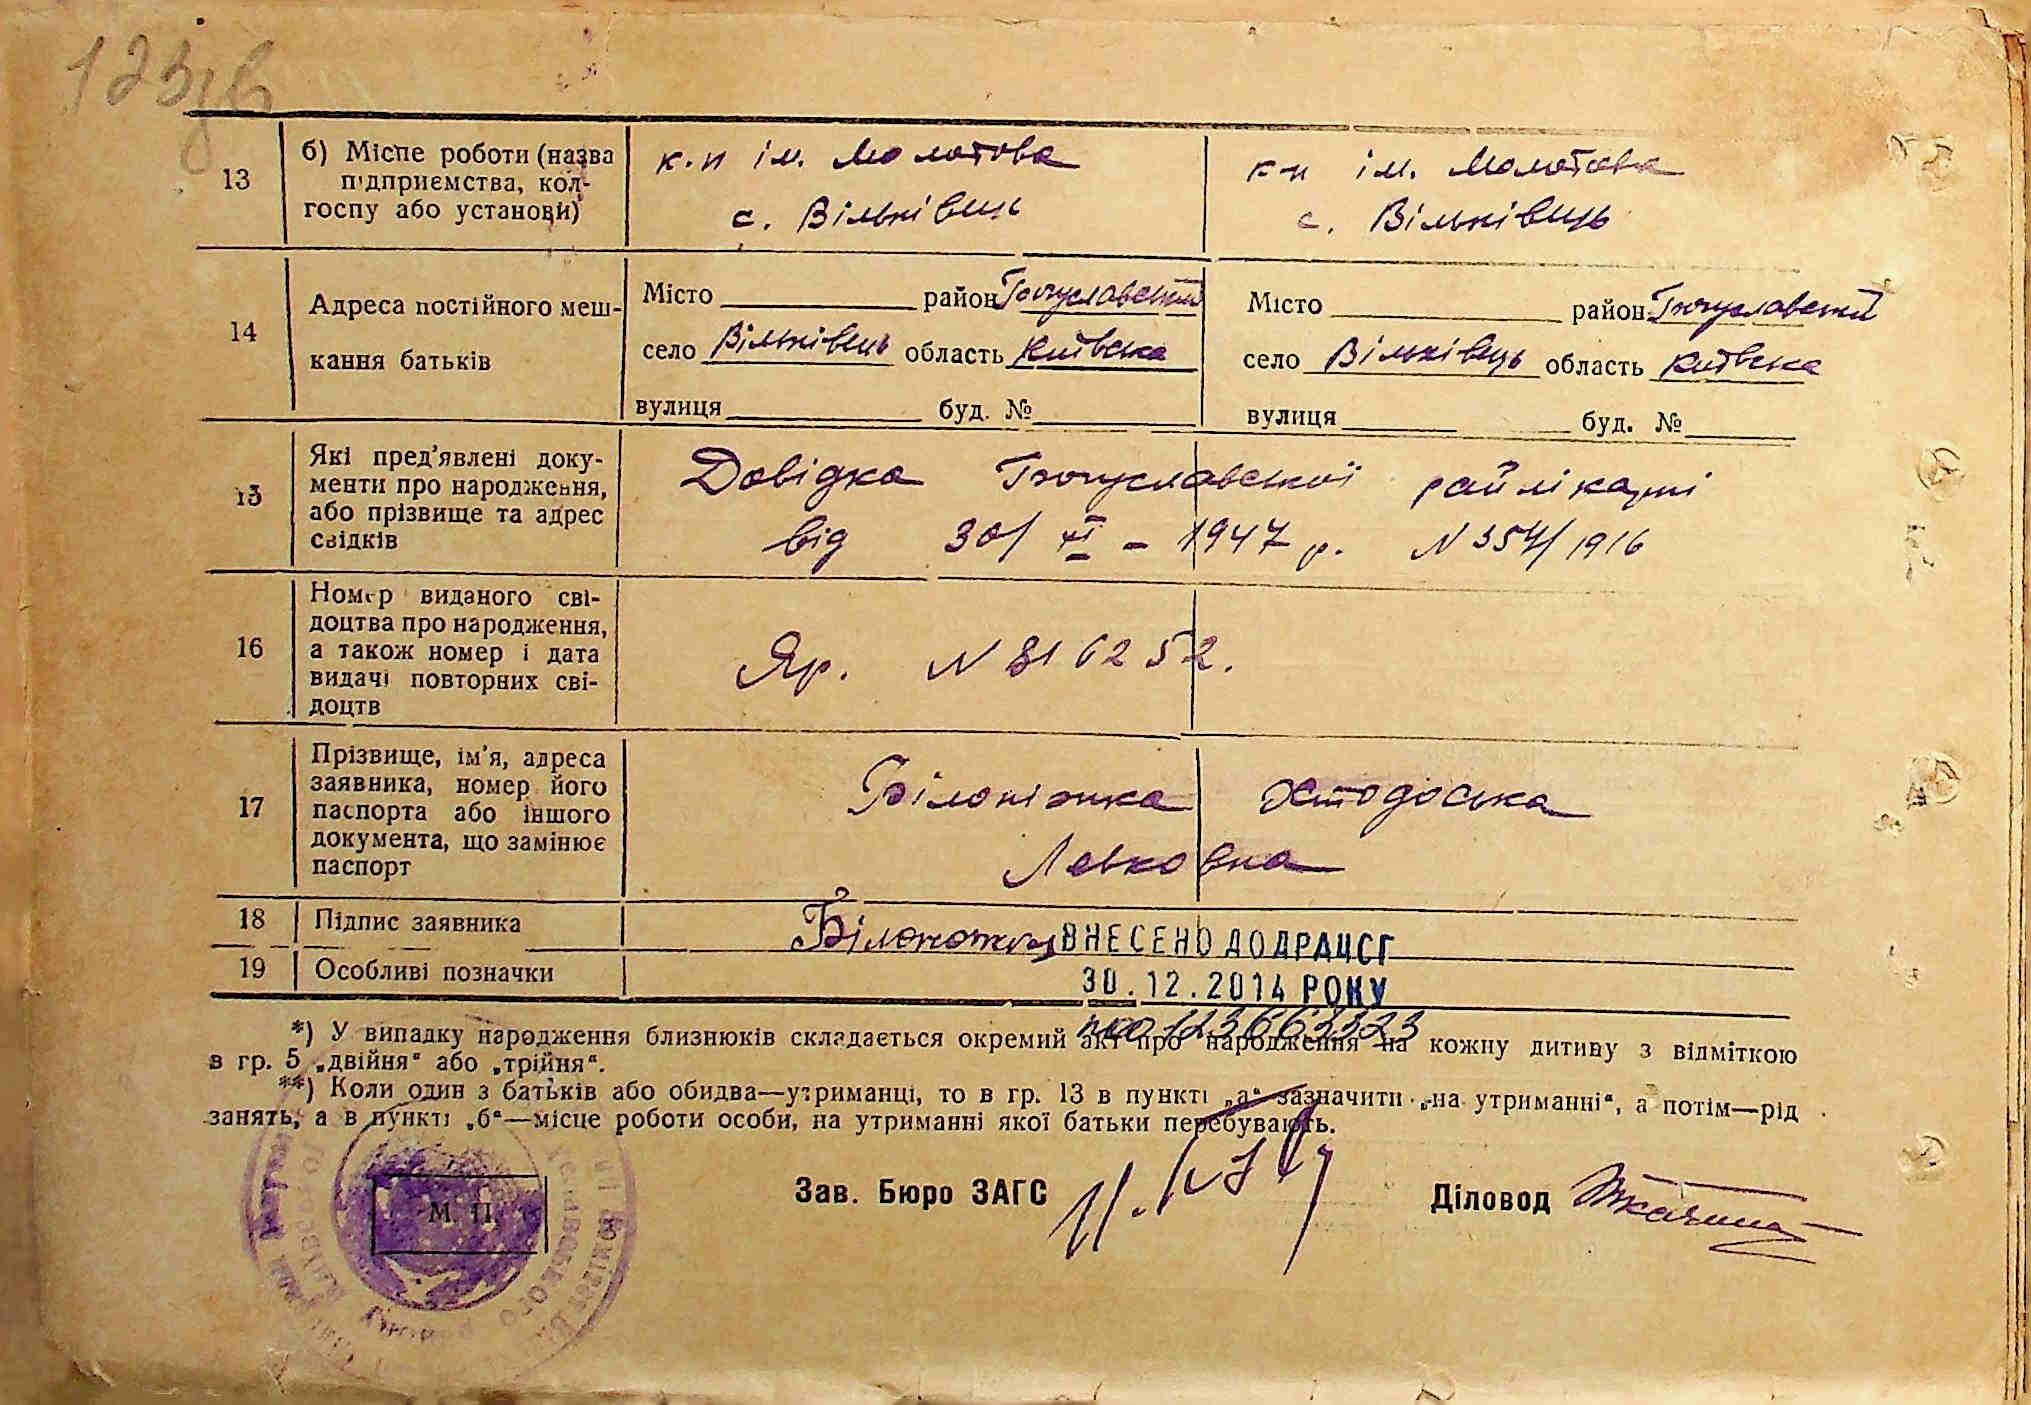 123зв
13
б) Місце роботи (назва
підприємства, кол-
госпу або установи)
к-п ім. Молотова
с. Вільхівець
к-п ім. Молотова
с. Вільхівець
14
Адреса постійного меш-
кання батьків
Місто район Богуславський
село Вільхівець область Київська
вулиця буд. №
Місто район Богуславський
село Вільхівець область Київська
вулиця буд. №
15
Які пред'явлені доку-
менти про народження,
або прізвище та адрес
свідків
Довідка Богуславської райлікарні
від 30/XI - 1947 р. N 354/1916
16
Номер виданого сві-
доцтва про народження,
а також номер і дата
видачі повторних сві-
доцтв
Яр. N 816252.
17
Прізвище, ім'я, адреса
заявника, номер його
паспорта або іншого
документа, що замінює
паспорт
Білоніжка Хтодоська
Левковна
18
Підпис заявника
Біло
ВНЕСЕНО ДО ДРАЦСГ
19
Особливі позначки
30.12.2014 РОКУ
123663323
*) У випадку народження близнюків складається окремий акт про народження на кожну дитину з відміткою
в гр. 5 „двійня“ або „трійня“.
**) Коли один з батьків або обидва—утриманці, то в гр. 13 в пункті „а“ зазначити „на утриманні“, а потім—рід
занять, а в пункті „б“—місце роботи особи, на утриманні якої батьки перебувають.
М. П.
Зав. Бюро ЗАГС
Діловод